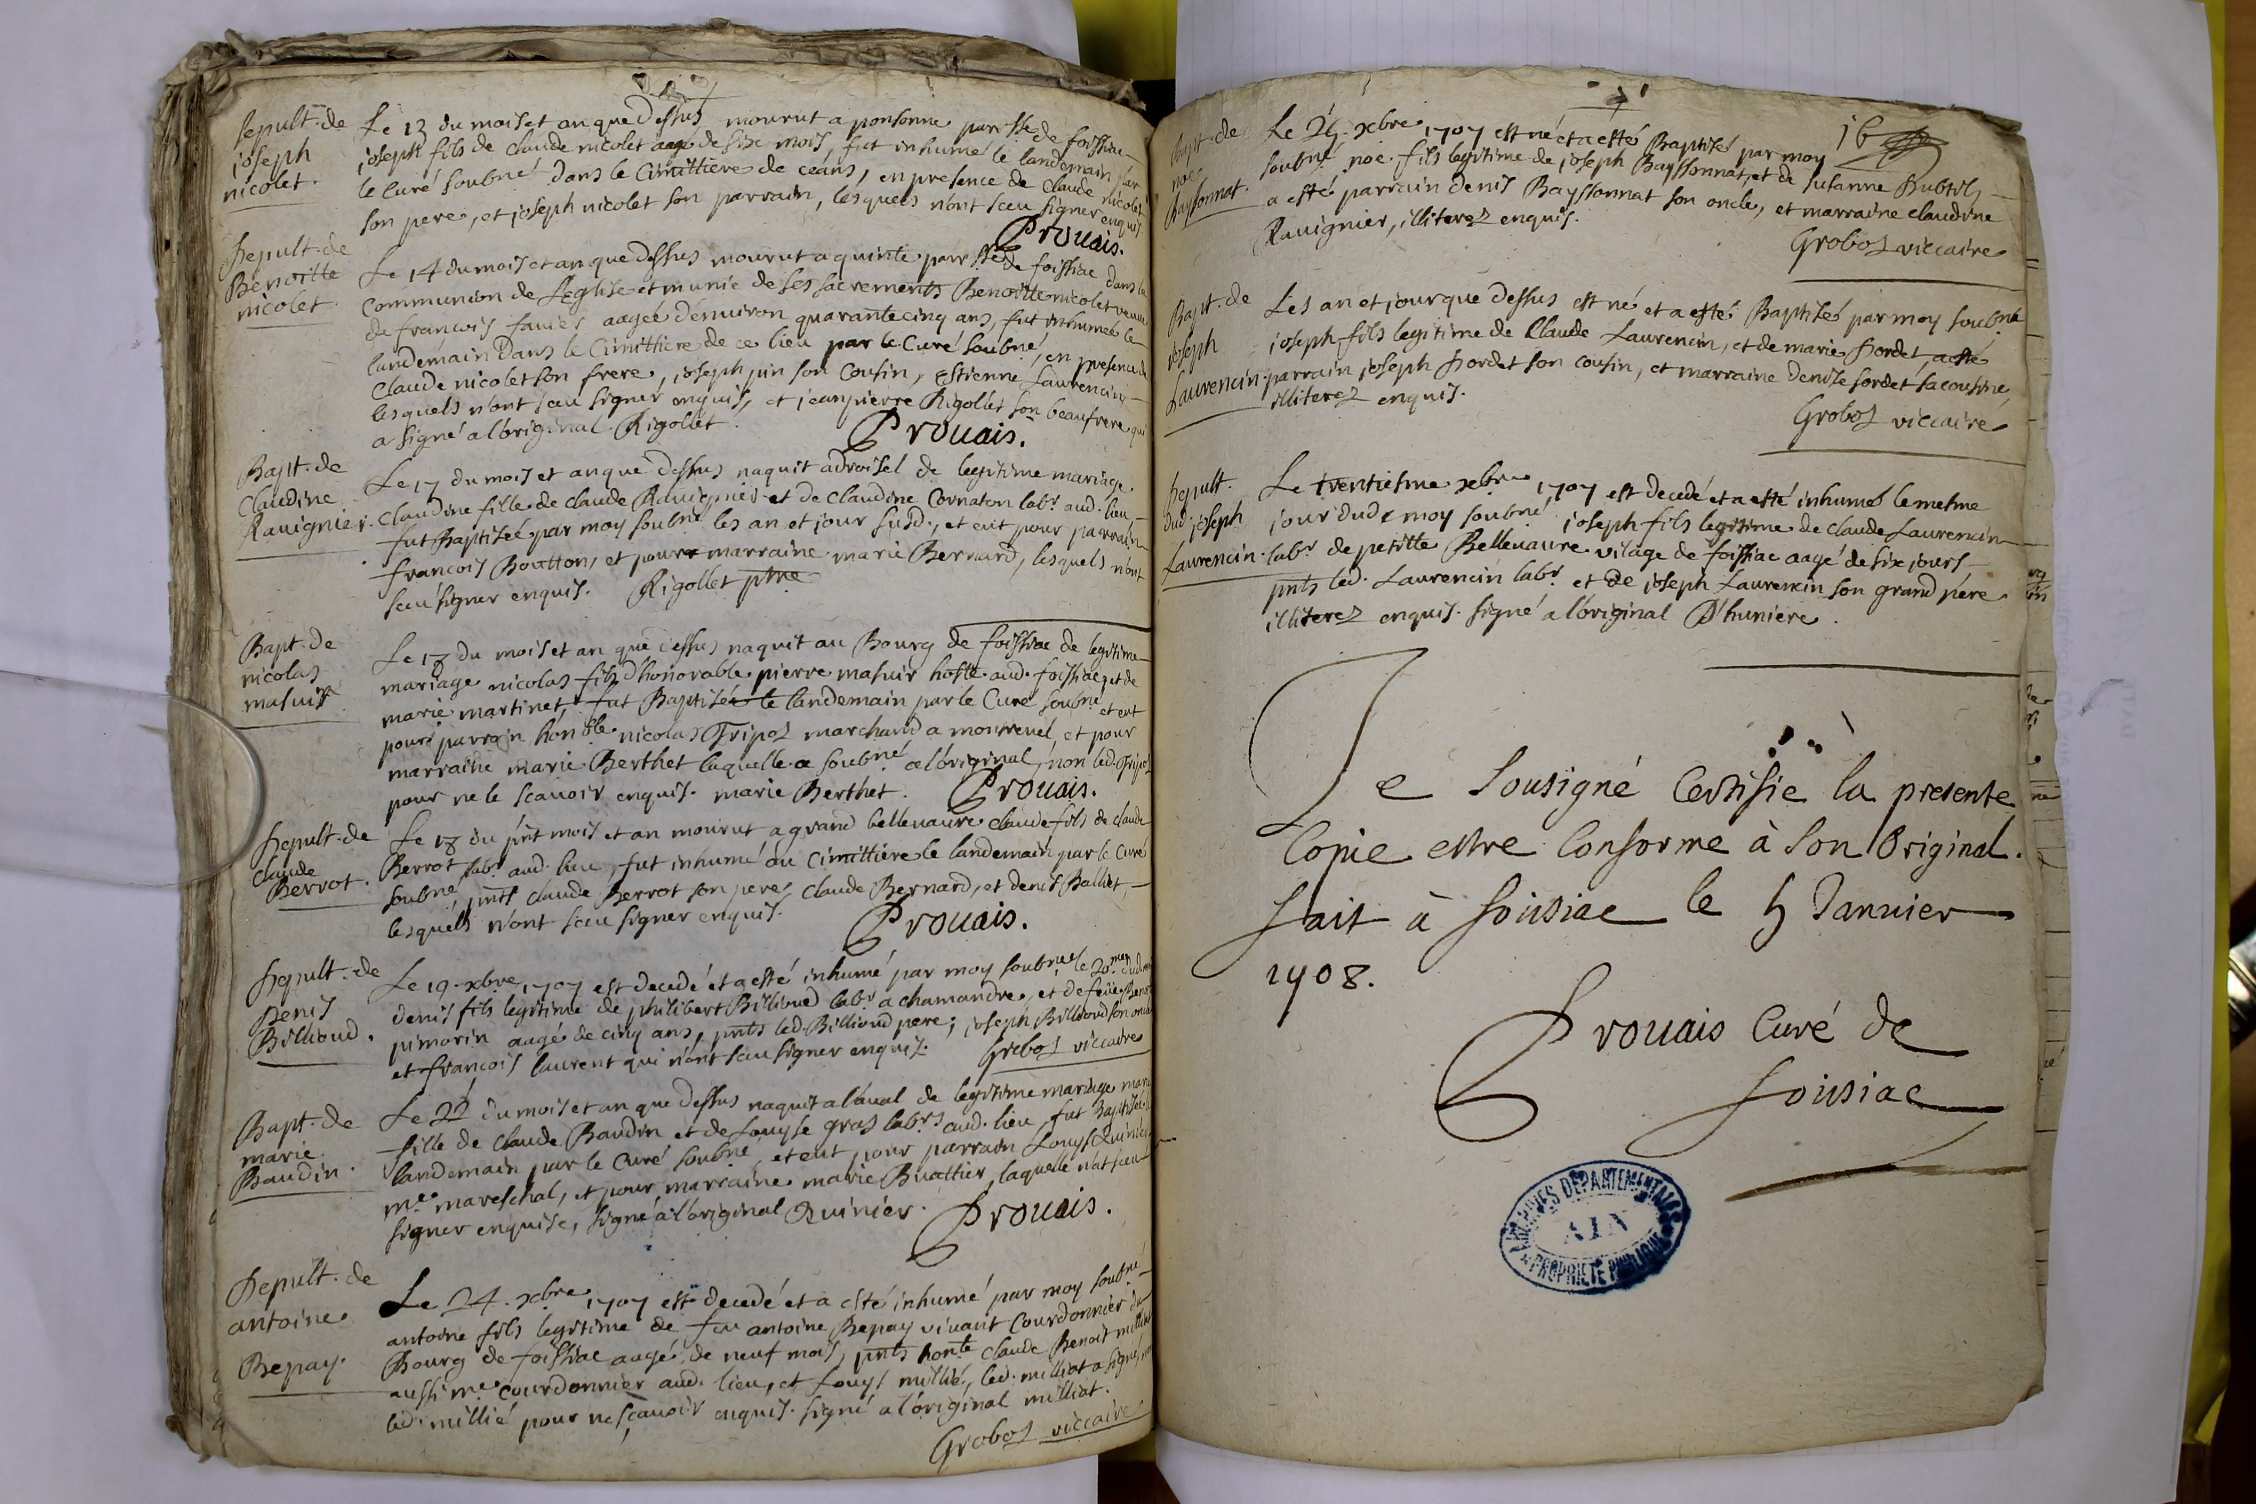 Sepult. de
joseph
nicolet.
Le 13 du mois et an que dessus mourut a ponsonne parsse de foissiac
joseph fils de Claude nicolet aagé de six mois, fut inhumé le landemain par
le Curé soubné dans le Cimittiere de ceans, en presence de Claude nicolet
son pere, et joseph nicolet son parrain, lesquels n'ont sceu signer enquis
Prouais.
Sepult. de
Benoitte
nicolet.
Le 14 du mois et an que dessus mourut a quinte parsse de foissiac dans la
Communion de l'Eglise et munie de ses sacrements Benoitte nicolet veuve
de francois favier aagée d'environ quarante cinq ans, fut inhumée le
landemain dans le Cimittiere de ce lieu par le Curé soubné, en presence de
Claude nicolet son frere, joseph pin son Cousin, Estienne Laurencin
lesquels n'ont sceu signer enquis, et jean pierre Rigollet son beaufrere qui
a signé a l'original. Rigollet.
Prouais.
Bapt. de
Claudine
Rauignier.
Le 17 du mois et an que dessus naquit a droisel de legitime mariage
Claudine fille de Claude Rauignier et de Claudine Cornaton labr. aud. lieu
fut Baptisée par moy soubné les an et jour susd., et eut pour parrain
francois Boutton, et pour marraine marie Bernard, lesquels n'ont
sceu signer enquis. Rigollet ptre
Bapt. de
nicolas
masuir
Le 18 du mois et an que dessus naquit au Bourg de foissiac de legitime
mariage nicolas fils d'honorable pierre masuir hoste aud. foissiac, et de
marie martinet, fut Baptisé le landemain par le Curé soubné et eut
pour parrain honble nicolas Tripoz marchand a montrevel, et pour
marraine marie Berthet laquelle a soubné a l'original, non led. Tripoz
pour ne le scauoir enquis. marie Berthet.
Prouais.
Sepult. de
Claude
Berrot.
Le 18 du pnt mois et an mourut a grand bellevaure Claude fils de Claude
Berrot labr aud. lieu, fut inhumé au Cimittiere le landemain par le Curé
soubné, pnts Claude Berrot son pere, Claude Bernard, et denis Balliet,
lesquels n'ont sceu signer enquis.
Prouais.
Sepult. de
Denis
Billioud.
Le 19. xbre 1707 est decedé et a esté inhumé par moy soubné le 20me dud.
denis fils legitime de philibert Billioud labr a chamandre, et de feüe
pimorin aagé de cinq ans, pnts led. Billioud pere; joseph Billioud son oncle
et francois laurent qui n'ont sceu signer enquis.
Groboz viccaire
Bapt. de
marie
Baudin.
Le 22 du mois et an que dessus naquit a l'aual de legitime mariage marie
fille de Claude Baudin et de Louyse gras labrs aud. lieu, fut Baptisée le
landemain par le Curé soubné, et eut pour parrain Louys Quinier
me mareschal, et pour marraine marie Buattier, laquelle n'at sceu
signer enquise, signé a l'original Quinier.
Prouais.
Sepult. de
antoine
Bepay.
Le 24. xbre 1707 est decedé et a esté inhumé par moy soubné
antoine fils legitime de feu antoine Bepay vivant Courdonnier du
Bourg de foissiac aagé de neuf mois, pnts honte Claude Benoit milliat
aussi me Courdonnier aud. lieu, et Louys millié, led. milliat a signé, non
led. millié pour ne scauoir enquis. signé a l'original milliat.
Groboz viccaire
16
Bapt. de
noe
Bayssonnat.
Le 25. xbre 1707 est né et a esté Baptisé par moy
soubné noé fils legitime de joseph Bayssonnat, et de susanne
a esté parrain denis Bayssonnat son oncle, et marraine Claudine
Rauignier, illiterez enquis.
Groboz viccaire
Bapt. de
joseph
Laurencin.
Les an et jour que dessus est né et a esté Baptisé par moy soubné
joseph fils legitime de Claude Laurencin, et de marie Sordet, a esté
parrain joseph Sordet son cousin, et marraine denise Sordet sa cousine,
illiterez enquis.
Groboz viccaire
Sepult.
dud. joseph
Laurencin.
Le trentiesme xbre 1707 est decedé et a esté inhumé le mesme
jour dud. moy soubné joseph fils legitime de Claude Laurencin
labr de petitte Bellevaure vilage de foissiac aagé de six jours
pnts led. Laurencin labr. et de joseph Laurencin son grand pere
illiterez enquis. signé a l'original D'huniere.
Je sousigné Certifie la presente
Copie estre Conforme à son Original.
fait à foissiac le 5 Januier
1708.
Prouais Curé de
foissiac
ARCHIVES DÉPARTEMENTALES
AIN
PROPRIÉTÉ PUBLIQUE